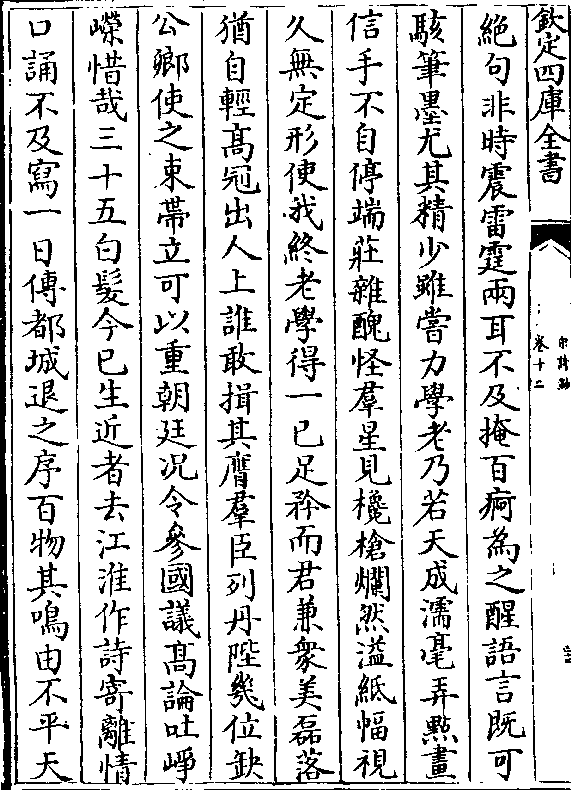 欽定四庫全書
卷十二
絶句非時震雷霆兩耳不及掩百痾為之醒語言既可
駭筆墨尤其精少雖嘗力學老乃若天成濡毫弄點畫
信手不自停端莊雜醜怪羣星見欃槍爛然溢紙幅視
久無定形使我終老學得一已足矜而君兼衆美磊落
猶自輕髙冠出人上誰敢揖其膺羣臣列丹陛幾位缺
公卿使之束帶立可以重朝廷况令參國議髙論吐崢
嶸惜哉三十五白髮今已生近者去江淮作詩寄離情
口誦不及寫一日傳都城退之序百物其鳴由不平天